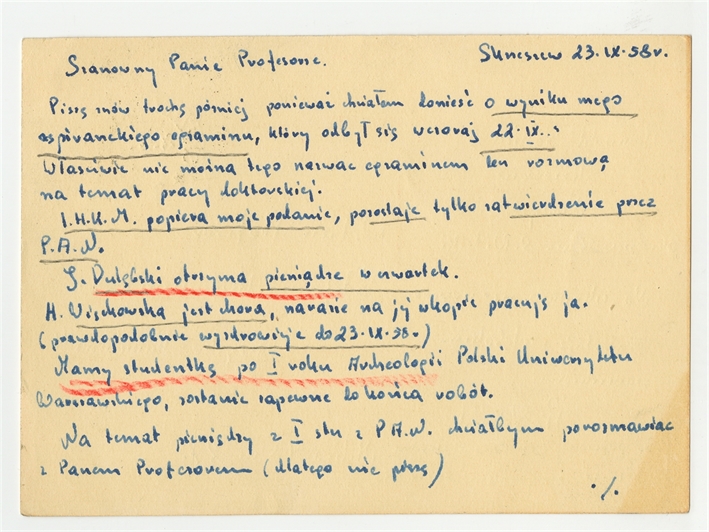 Szanowny Panie Profesorze. 23.IX.58r.
Piszę znów trochę później ponieważ chciałem donieść o wyniku mego
aspiranckiego egzaminu, który odbył się wczoraj 22.IX..
Właściwie nie można tego nazwać egzaminem lecz rozmową
na temat pracy doktorskiej.
I.H.K.M. popiera moje podanie, pozostaje tylko zatwierdzenie przez
P.A.N.
J. Dulębski otrzyma pieniądze w czwartek.
H. Więckowska jest chora, narazie na jej wkopie pracuję ja.
(prawdopodobnie wyzdrowieje do 23.IX.58r)
Mamy studentkę po I roku Archeologii Polski Uniwersytetu
Warszawskiego, zostanie zapewne do końca robót.
Na temat pieniędzy z I stu z P.A.N. chciałbym porozmawiać
z Panem Profesorem (dlatego nie piszę)
./.